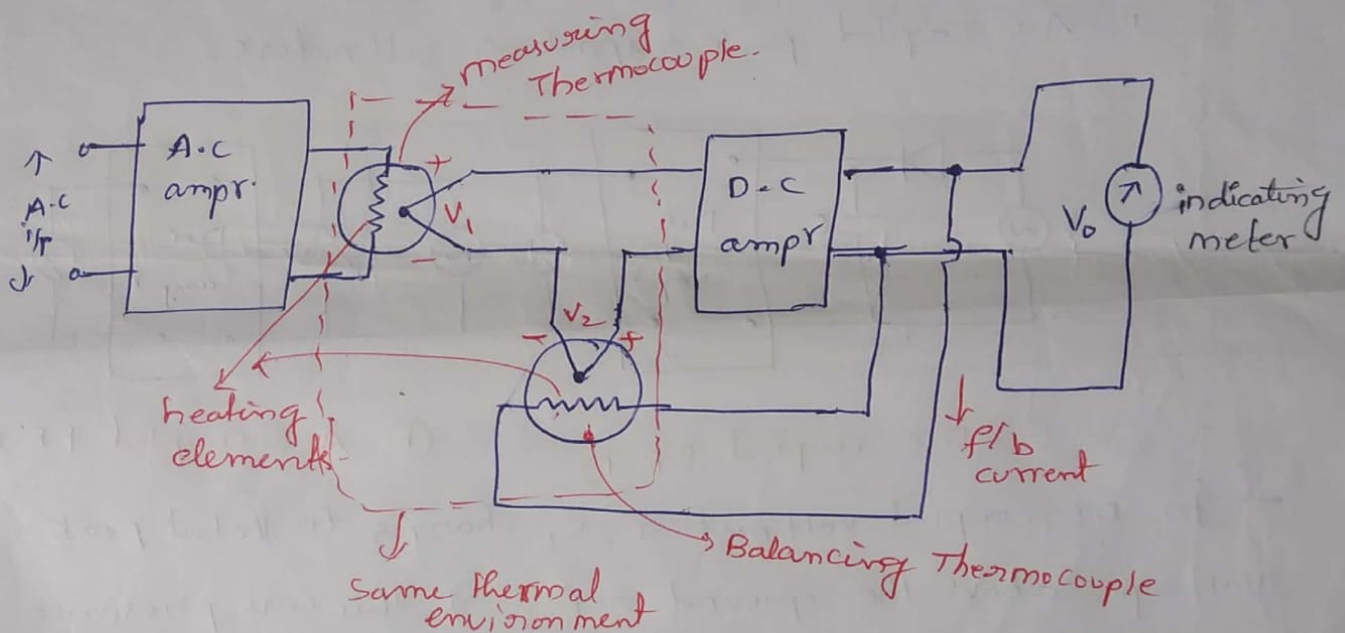 measuring
Thermocouple.
A.C
i/p
A.C
ampr.
+
V₁
-
D.C
ampr
V₀
indicating
meter
V₂
-
+
heating
elements
f/b
current
Balancing Thermocouple
Same thermal
environment